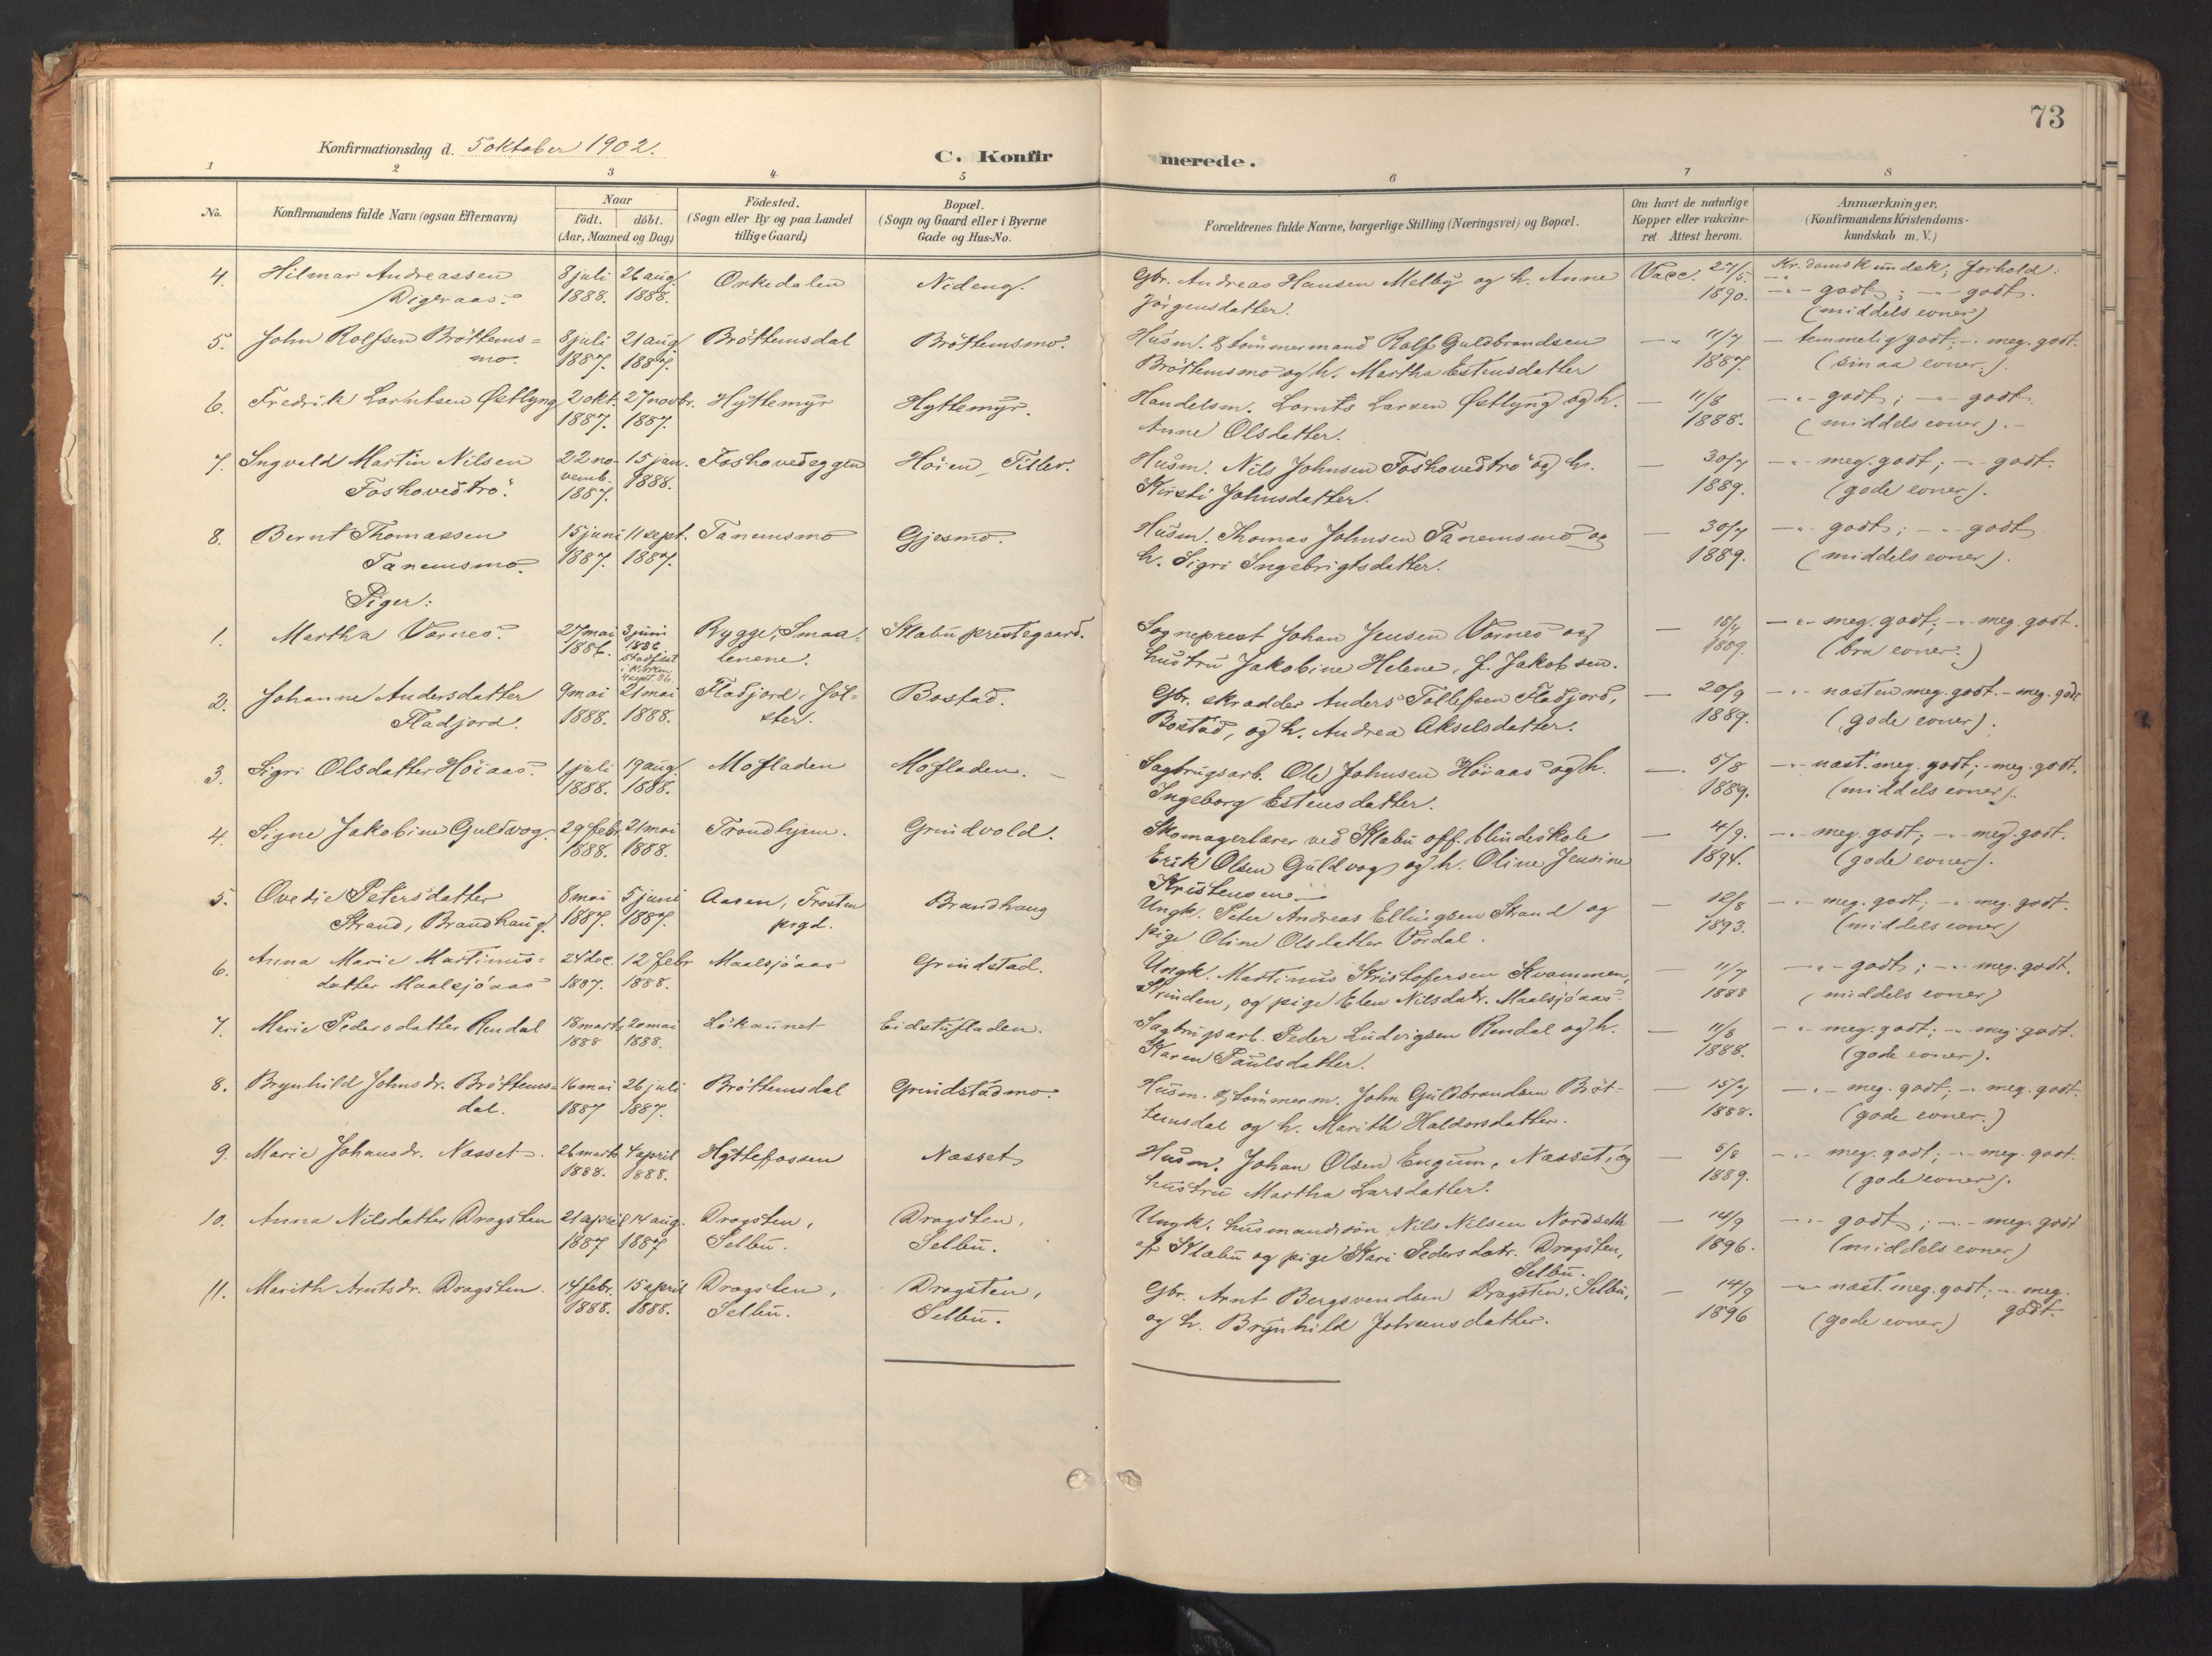 73
Konfirmationsdag d. 5 oktober 1902.
C. Konfirmerede.
1 2 3 4 5 6 7 8
No.
Konfirmandens fulde Navn (ogsaa Efternavn)
Naar
födt. döbt.
(Aar, Maaned og Dag)
Födested.
(Sogn eller By og paa Landet
tillige Gaard)
Bopæl.
(Sogn og Gaard eller i Byerne
Gade og Hus-No.
Forældrenes fulde Navne, borgerlige Stilling (Næringsvei) og Bopæl.
Om havt de naturlige
Kopper eller vakcine-
ret. Attest herom.
Anmærkninger.
(Konfirmandens Kristendoms-
kundskab m. V.)
4. Hilmar Andreassen 8 juli 26 aug. Orkedalen Nideng. Gbr. Andreas Hansen Melby og h. Anne Vacc. 27/5 Kr.domskundsk; forhold:
Digeraas. 1888. 1888. Jörgensdatter. 1890. -"- godt; -"- godt.
(middels evner)
5. John Rolfsen Bröttems= 8 juli 21 aug. Bröttemsdal Bröttemsmo. Husm. & tömmermand Rolf Guldbrandsen -"- 11/7 - temmelig godt; -"- meg. godt.
mo. 1887. 1887. Bröttemsmo og h. Martha Estensdatter 1887. (smaa evner.).
6. Fredrik Lorntsen Østlyng 2 okt. 27 novbr. Hyttemyr Hyttemyr. Handelsm. Lornts Larsen Østlyng og h. - 11/8 -"- godt; -"- godt.
1887. 1887. Anne Olsdatter. 1888. (middels evner). -
7. Ingvald Martin Nilsen 22 no- 15 jan. Foshovedeggen Höien, Tiller. Husm. Nils Johnsen Foshovedtrö og h. - 30/7 -"- meg. godt; -"- godt.
Foshovedtrö. vemb. 1887. 1888. Kirsti Johnsdatter. 1889. (gode evner).
8. Bernt Thomassen 15 juni 11 sept. Tanemsmo Gjesmo. Husm. Thomas Johnsen Tanemsmo og - 30/7 -"- godt; -"- godt
Tanemsmo. 1887. 1887. h. Sigri Ingebrigtsdatter. 1889. (middels evner).
Piger:
1. Martha Værnes. 27 mai 3 juni Rygge, Smaa- Klæbu prestegaard. Sogneprest Johan Jensen Værnes og - -"- meg. godt; -"- meg. godt.
1886. 1886 stadfæst i kirken 4 sept. 86. lenene. hustru Jakobine Helene, f. Jakobsen. 1889. (bra evner.)
2. Johanne Andersdatter 9 mai 21 mai Fladjord, Jöl- Bostad. Gbr. skrædder Anders Tollefsen Fladjord, - 20/9 -"- næsten meg. godt. - meg. godt
Fladjord. 1888. 1888. ster. Bostad, og h. Andrea Akselsdatter. 1889. (gode evner).
3. Sigri Olsdatter Höiaas. 1 juli 19 aug. Mofladen Mofladen. - Sagbrugsarb. Ole Johnsen Höiaas og h. - 5/8 -"- næst. meg. godt; - meg. godt.
1888. 1888. Ingeborg Estensdatter. 1889. (middels evner).
4. Signe Jakobine Guldvog. 29 febr. 21 mai Trondhjem. Grindvold. Skomagerlærer ved Klæbu off. blindeskole - 4/9. -"- meg. godt; -"- meg. godt.
1888. 1888. Erik Olsen Guldvog og h. Oline Jensine 1894. (gode evner).
Kristensen. -
5. Ovedie Petersdatter 8 mai 5 juni Aasen, Frosten Brandhaug Ungk. Peter Andreas Ellingsen Strand og - 12/8 -"- meg. godt; -"- meg. godt.
Strand, Brandhaug. 1887. 1887. prgd. pige Oline Olsdatter Vordal. 1893. (middels evner)
6. Anna Marie Martinus- 24 dec. 12 febr Maalsjöaas Grindstad. Ungk. Martinus Kristofersen Kvammen, - 11/7 -"- godt; -"- meg. godt.
datter Maalsjöaas 1887. 1888. Strinden, og pige Elen Nilsdatr. Maalsjöaas. 1888 (middels evner)
7. Marie Pedersdatter Rendal 18 marts 20 mai Lökaunet Eidstufladen. Sagbrugsarb. Peder Ludvigsen Rendal og h. - 11/8 -"- meg. godt; -"- meg. godt.
1888 1888. Karen Paulsdatter. 1888. (gode evner).
8. Brynhild Johnsdr. Bröttems- 16 mai 26 juli Bröttemsdal Grindstadmo. Husm. & tömmerm. John Guldbrandsen Bröt- - 15/7 -"- meg. godt; -"- meg. godt.
dal. 1887 1887. temsdal og h. Marith Haldorsdatter. 1888. (gode evner.)
9. Marie Johansdr. Næsset. 26 marts 4 april Hyttefossen Næsset Husm. Johan Olsen Engum, Næsset, og - 5/8 -"- meg. godt; -"- meg. godt.
1888. 1888. hustru Martha Larsdatter. 1889. (gode evner).
10. Anna Nilsdatter Dragsten 21 april 14 aug. Dragsten, Dragsten, Ungk. husmandssön Nils Nilsen Nordseth - 14/9 -"- godt; -"- meg. godt
1887 1887 Selbu. Selbu. af Klæbu og pige Kari Pedersdatr. Dragsten, 1896. (middels evner)
Selbu.
11. Marith Arntsdr. Dragsten. 14 febr. 15 april Dragsten, Dragsten, Gbr. Arnt Bergsvendsen Dragsten, Selbu, - 14/9 -"- næst. meg. godt; -"- meg.
1888. 1888. Selbu. Selbu. og h. Brynhild Johansdatter. 1896 (gode evner) godt.